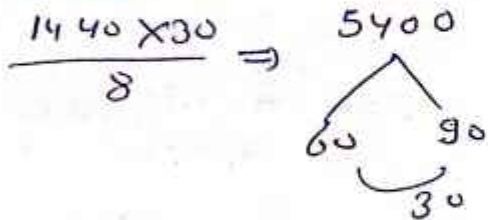 1440 X30 ⇒ 5400
8
60 90
30